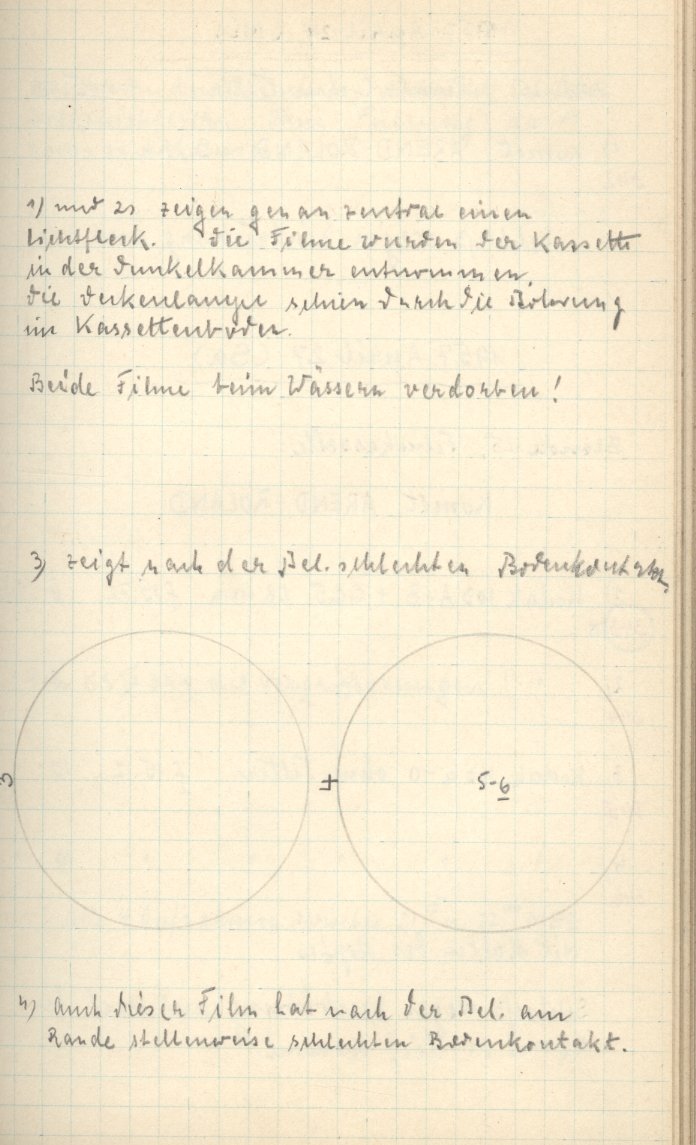 1) und 2) zeigen genau zentral einen
Lichtfleck. Die Filme wurden der Kassette
in der Dunkelkammer entnommen.
Die Deckenlampe schien durch die Bohrung
im Kassettenboden.
Beide Filme beim Wässern verdorben!
3) zeigt nach der Bel. schlechten Bodenkontakt.
3
4
5-6
4) auch dieser Film hat nach der Bel. am
Rande stellenweise schlechten Bodenkontakt.